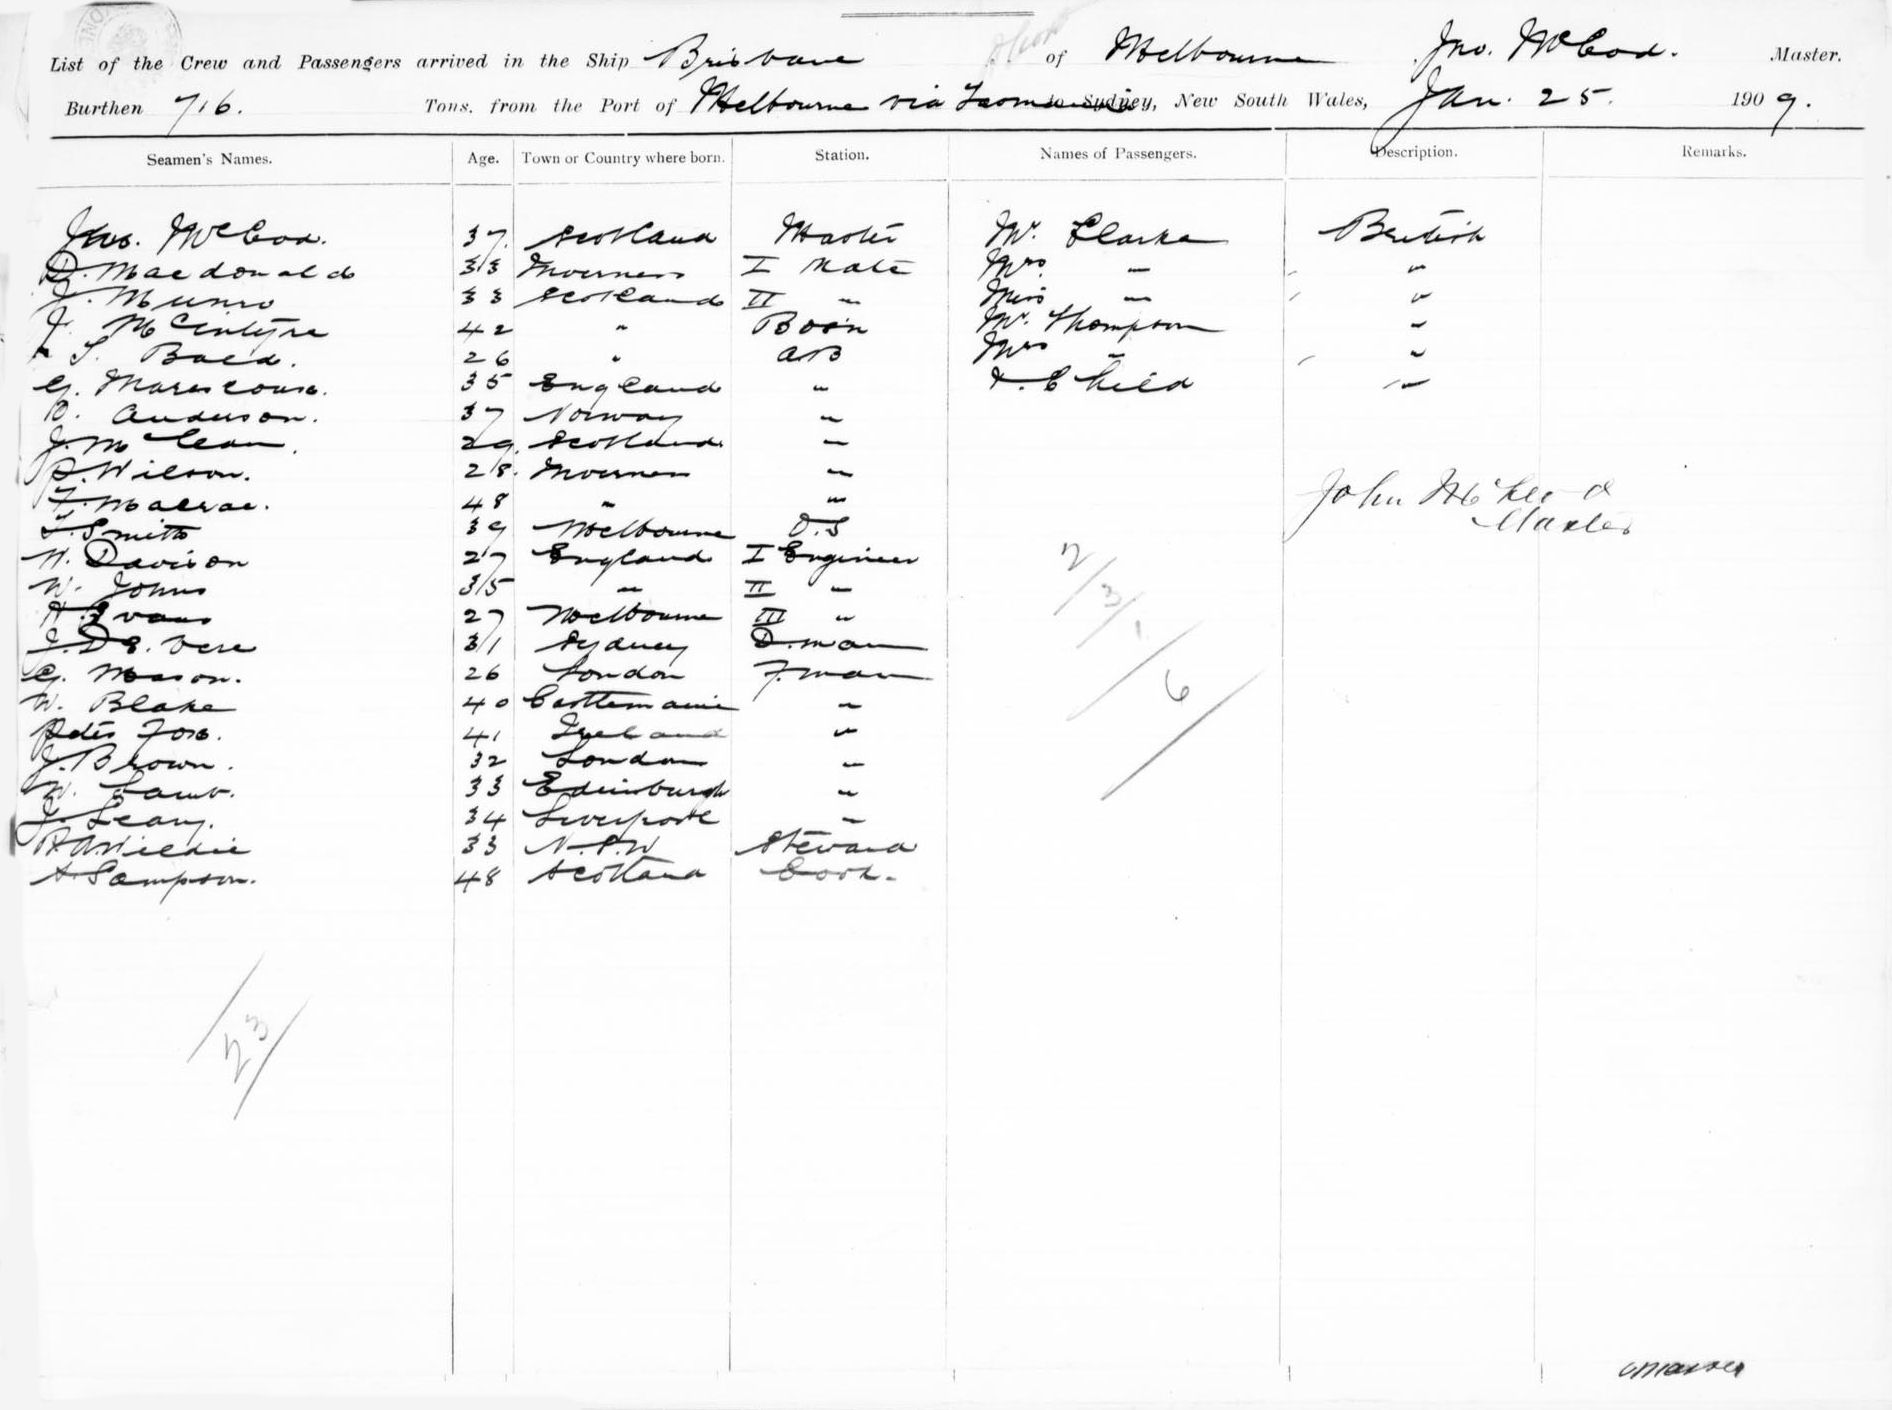 List of the Crew and Passengers arrived in the Ship Brisbane of Melbourne Jno. McLeod. Master.
Burthen 716. Tons. from the Port of Melbourne via Tasmania to Sydney, New South Wales, Jan. 25. 1909.
Seamen's Names. Age. Town or Country where born. Station. Names of Passengers. Description. Remarks.
Jno. McLeod. 37. Scotland Master Mr. Clarke British
D. Macdonald 33 Inverness I Mate Mrs " "
J. Munro 33 Scotland II " Miss " "
J. McIntyre 42 " Bos'n Mr. Thompson "
S. 26 " AB Mrs " "
G. 35 England " & Child "
Anderson. 37 Norway "
J. McLean. 29. Scotland "
P. Wilson. 28. Inverness "
F. Macrae. 48 " "
T. Smith 39 Melbourne O.S
W. Davison 27 England I Engineer
W. Johns 35 " II "
H. Evans 27 Melbourne III "
J. De Vere 31 Sydney D.man
G. Mason. 26 London F.man
W. Blake 40 Castlemaine "
Peter Fox. 41 Ireland "
J. Brown. 32 London "
W. Lamb. 33 Edinburgh "
J. Leary. 34 Liverpool "
33 N.S.W Steward
A. Sampson. 48 Scotland Cook.
John McLeod
Master
2/3/1/6
23